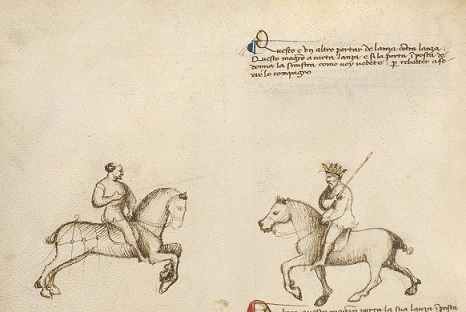 Questo e un altro portar de lanza contra lanza.
Questo magistro a curta lanza e si la porta in posta de
donna la sinistra como voy vedete per rebatter a fe-
rir lo compagno
questo magistro porta la sua lanza in posta